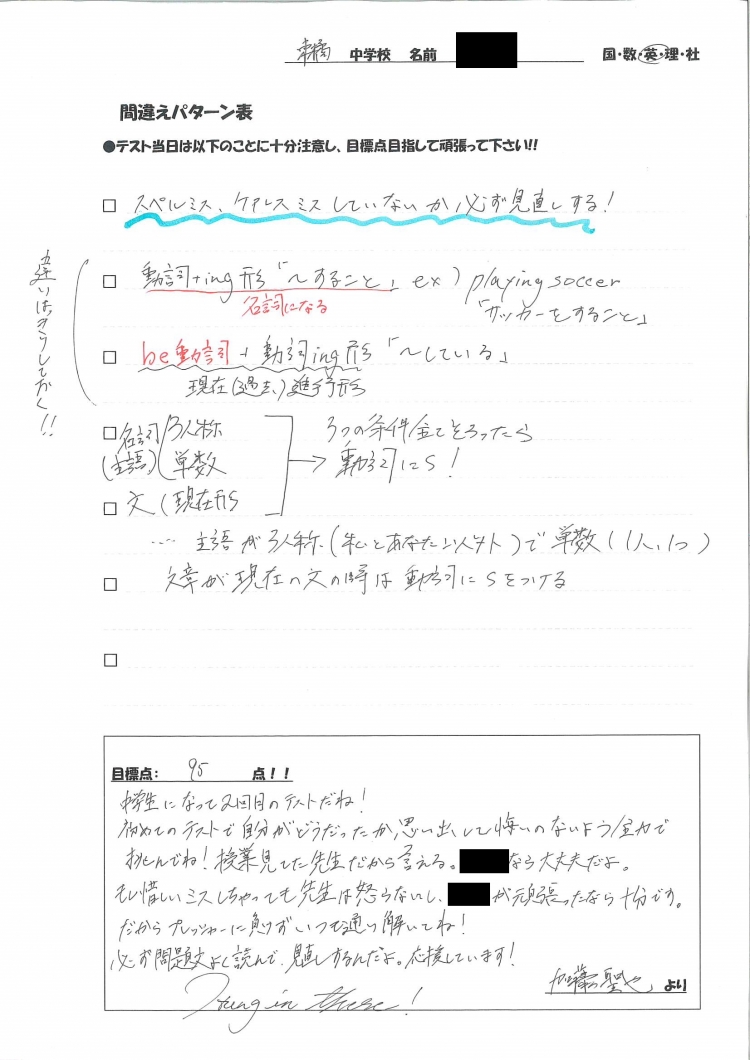 中学校 名前 国・数・英・理・社
間違えパターン表
●テスト当日は以下のことに十分注意し、目標点目指して頑張って下さい!!
□ スペルミス、ケアレスミスしていないか必ず見直しする!
違いははっきりしておく!!
□ 動詞+ing形「〜すること」 ex) playing soccer
名詞になる 「サッカーをすること」
□ be動詞+動詞ing形「〜している」
現在(過去)進行形
□ 名詞 3人称 3つの条件全てそろったら
(主語) 単数 → 動詞にS!
□ 文 ( 現在形
… 主語が3人称(私とあなた以外)で単数(1人、1つ)
□ 文章が現在の文の時は動詞にSをつける
□
目標点: 95 点!!
中学生になって2回目のテストだね!
初めてのテストで自分がどうだったか思い出して悔いのないよう全力で
挑んでね!授業見てた先生だから言える。 なら大丈夫だよ。
もし惜しいミスしちゃっても先生は怒らないし、 が頑張ったなら十分です。
だからプレッシャーに負けずいつも通り解いてね!
必ず問題文よく読んで、見直しするんだよ。応援しています!
Hang in there! 加藤聖也 より